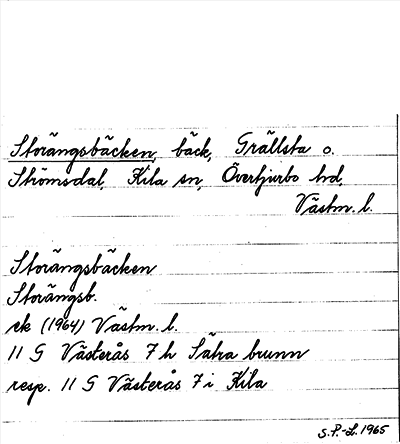 Storängsbäcken, bäck, Grällsta o.
Strömsdal, Kila sn, Övertjurbo hd,
Västm. l.
Storängsbäcken
Storängsb.
ek (1964) Västm. l.
11 G Västerås 7 h Sätra brunn
resp. 11 G Västerås 7 i Kila
S.P.-L. 1965